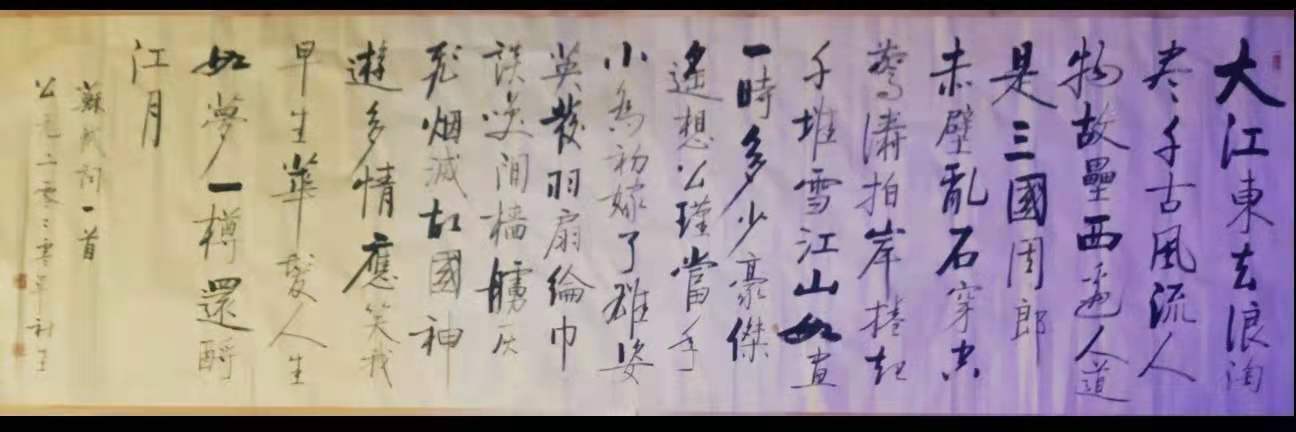 大江東去浪淘
尽千古風流人
物故壘西邊人道
是三國周郎
赤壁亂石穿空
驚濤拍岸捲起
千堆雪江山如畫
一時多少豪傑
遙想公瑾當年
小喬初嫁了雄姿
英發羽扇綸巾
談笑間檣艫灰
飛烟滅故國神
遊多情應笑我
早生華髮人生
如夢一樽還酹
江月
蘇軾詞一首
公元二零二零年